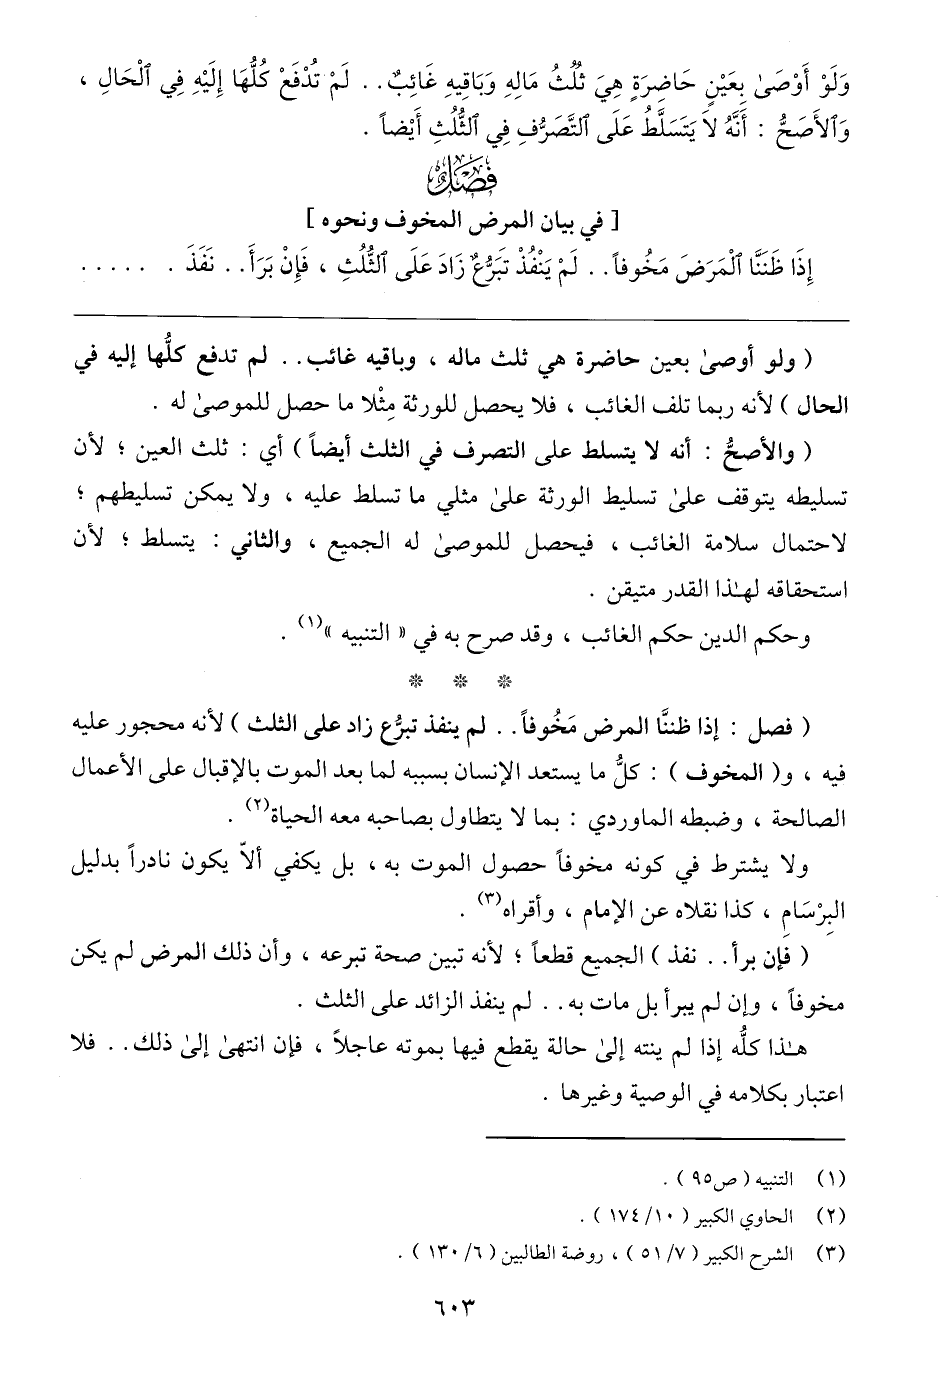 وَلَوْ أَوْصَىٰ بِعَيْنٍ حَاضِرَةٍ هِيَ ثُلُثُ مَالِهِ وَبَاقِيهِ غَائِبٌ.. لَمْ تُدْفَعْ كُلُّهَا إِلَيْهِ فِي ٱلْحَالِ ،
وَٱلأَصَحُّ : أَنَّهُ لاَ يَتَسَلَّطُ عَلَى ٱلتَّصَرُّفِ فِي ٱلثُّلُثِ أَيْضاً .
فصل
[ في بيان المرض المخوف ونحوه ]
إِذَا ظَنَنَّا ٱلْمَرَضَ مَخُوفاً.. لَمْ يَنْفُذْ تَبَرُّعٌ زَادَ عَلَى ٱلثُّلُثِ ، فَإِنْ بَرَأَ.. نَفَذَ . . . . . .
( ولو أوصىٰ بعين حاضرة هي ثلث ماله ، وباقيه غائب.. لم تدفع كلُّها إليه في
الحال ) لأنه ربما تلف الغائب ، فلا يحصل للورثة مِثْلا ما حصل للموصىٰ له .
( والأصحُّ : أنه لا يتسلط على التصرف في الثلث أيضاً ) أي : ثلث العين ؛ لأن
تسليطه يتوقف علىٰ تسليط الورثة علىٰ مثلي ما تسلط عليه ، ولا يمكن تسليطهم ؛
لاحتمال سلامة الغائب ، فيحصل للموصىٰ له الجميع ، والثاني : يتسلط ؛ لأن
استحقاقه لهـٰذا القدر متيقن .
وحكم الدين حكم الغائب ، وقد صرح به في « التنبيه »(١) .
* * *
( فصل : إذا ظننَّا المرض مَخُوفاً.. لم ينفذ تبرُّع زاد على الثلث ) لأنه محجور عليه
فيه ، و( المخوف ) : كلُّ ما يستعد الإنسان بسببه لما بعد الموت بالإقبال على الأعمال
الصالحة ، وضبطه الماوردي : بما لا يتطاول بصاحبه معه الحياة(٢) .
ولا يشترط في كونه مخوفاً حصول الموت به ، بل يكفي ألاّ يكون نادراً بدليل
البِرْسَامِ ، كذا نقلاه عن الإمام ، وأقراه(٣) .
( فإن برأ.. نفذ ) الجميع قطعاً ؛ لأنه تبين صحة تبرعه ، وأن ذلك المرض لم يكن
مخوفاً ، وإن لم يبرأ بل مات به.. لم ينفذ الزائد على الثلث .
هـٰذا كلُّه إذا لم ينته إلىٰ حالة يقطع فيها بموته عاجلاً ، فإن انتهىٰ إلىٰ ذلك.. فلا
اعتبار بكلامه في الوصية وغيرها .
(١) التنبيه ( ص٩٥ ) .
(٢) الحاوي الكبير ( ١٠/ ١٧٤ ) .
(٣) الشرح الكبير ( ٧/ ٥١ ) ، روضة الطالبين ( ٦/ ١٣٠ ) .
٦٠٣